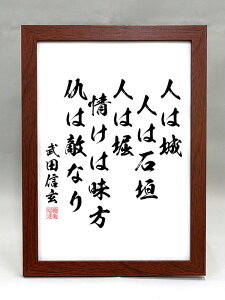 人は城
人は石垣
人は堀
情けは味方
仇は敵なり
武田信玄